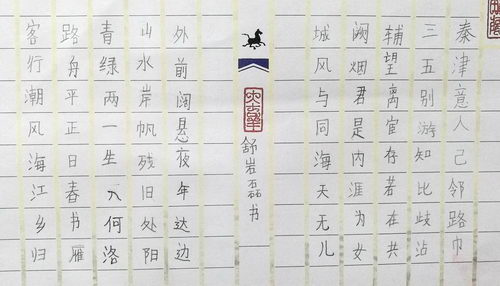 客路青山外
行舟绿水前
潮平两岸阔
风正一帆悬
海日生残夜
江春入旧年
乡书何处达
归雁洛阳边
舒岩磊书
城阙辅三秦
风烟望五津
与君离别意
同是宦游人
海内存知己
天涯若比邻
无为在歧路
儿女共沾巾